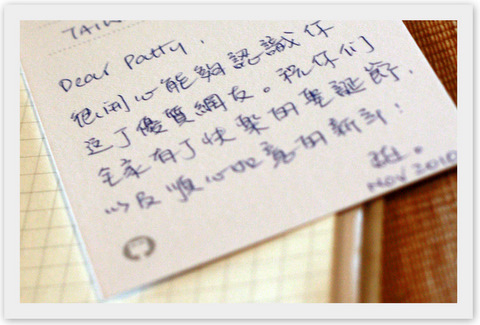 TAIW
Dear Patty,
很開心能夠認識你
這个優質網友。祝你们
全家有个快樂的聖誕節,
以及順心如意的新年!
NOV 2010